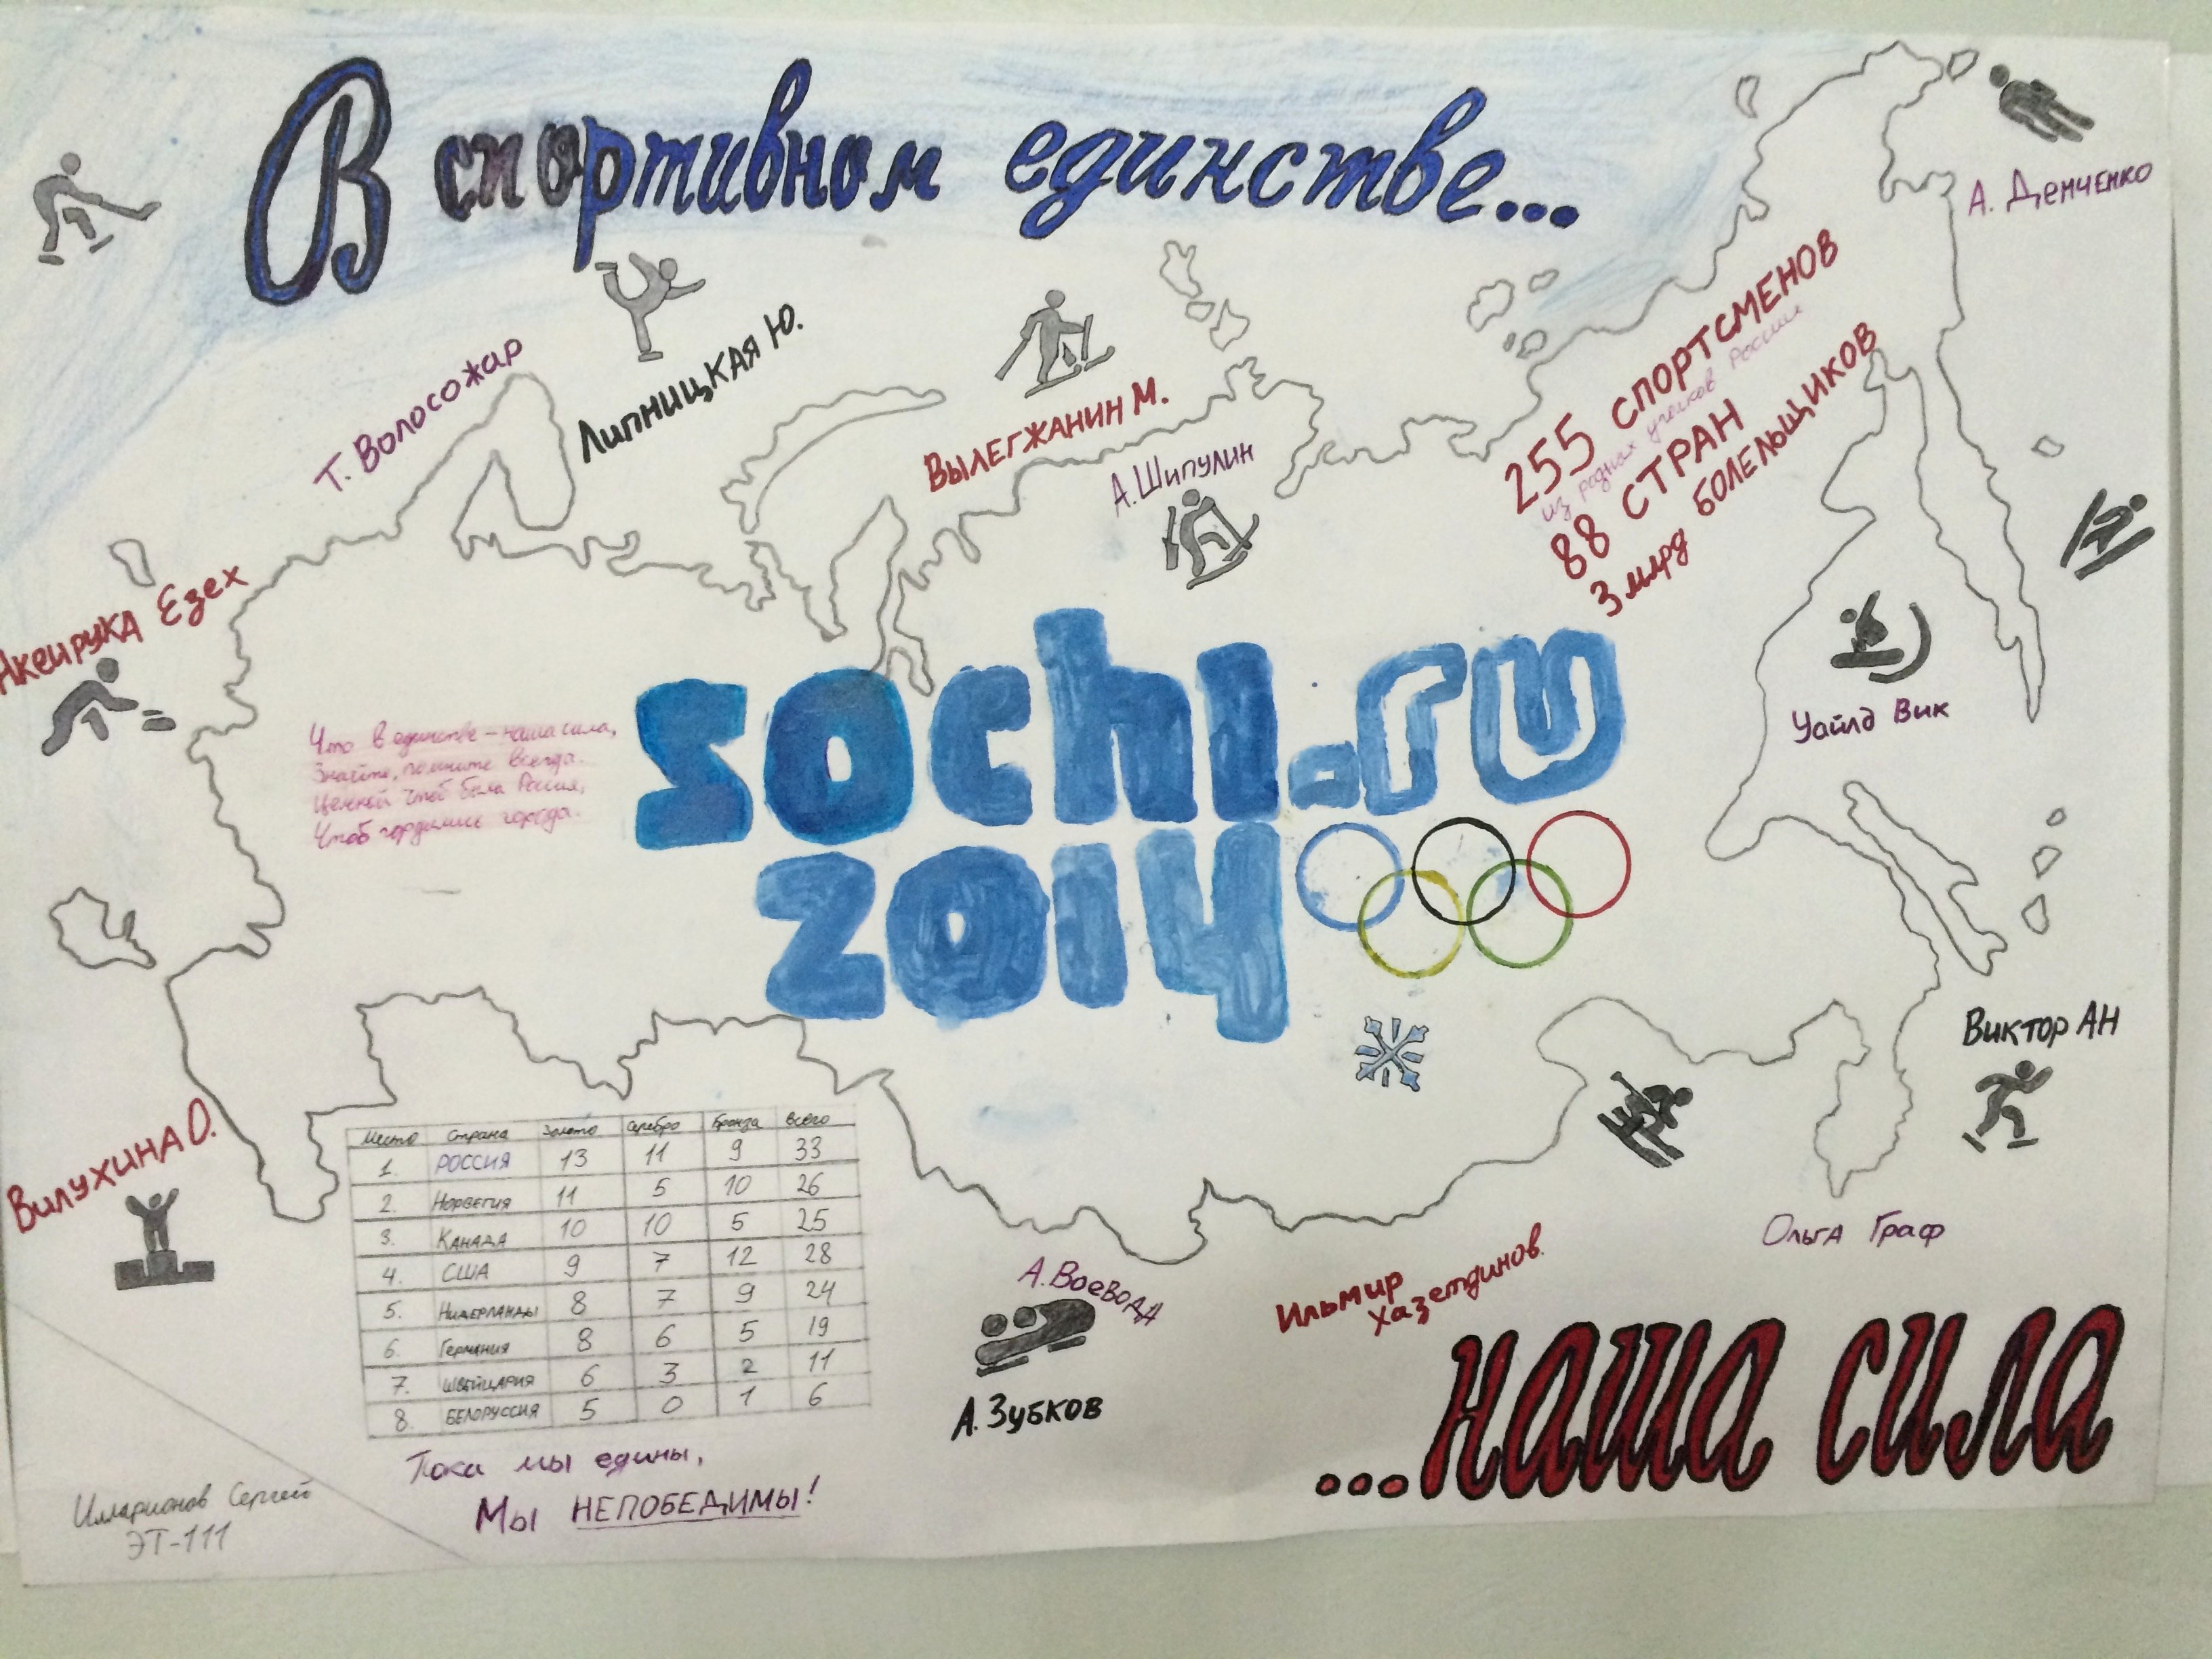 В спортивном единстве...
А. Демченко
Т. Волосожар
Липницкая Ю.
Вылегжанин М.
А. Шипулин
255 спортсменов
из разных уголков России
88 стран
3 млрд болельщиков
Аксирука Езех
Что в единстве - наша сила,
Знайте, помните всегда.
Цельной чтоб была Россия,
Чтоб гордились города.
sochi.ru
2014
Уайлд Вик
Виктор Ан
Вилухина О.
Место Страна Золото Серебро Бронза Всего
1. Россия 13 11 9 33
2. Норвегия 11 5 10 26
3. Канада 10 10 5 25
4. США 9 7 12 28
5. Нидерланды 8 7 9 24
6. Германия 8 6 5 19
7. Швейцария 6 3 2 11
8. Белоруссия 5 0 1 6
Ольга Граф
А. Воевода
Ильмир
Хазетдинов
А. Зубков
Пока мы едины,
Мы непобедимы!
...наша сила
Илларионов Сергей
ЭТ-111